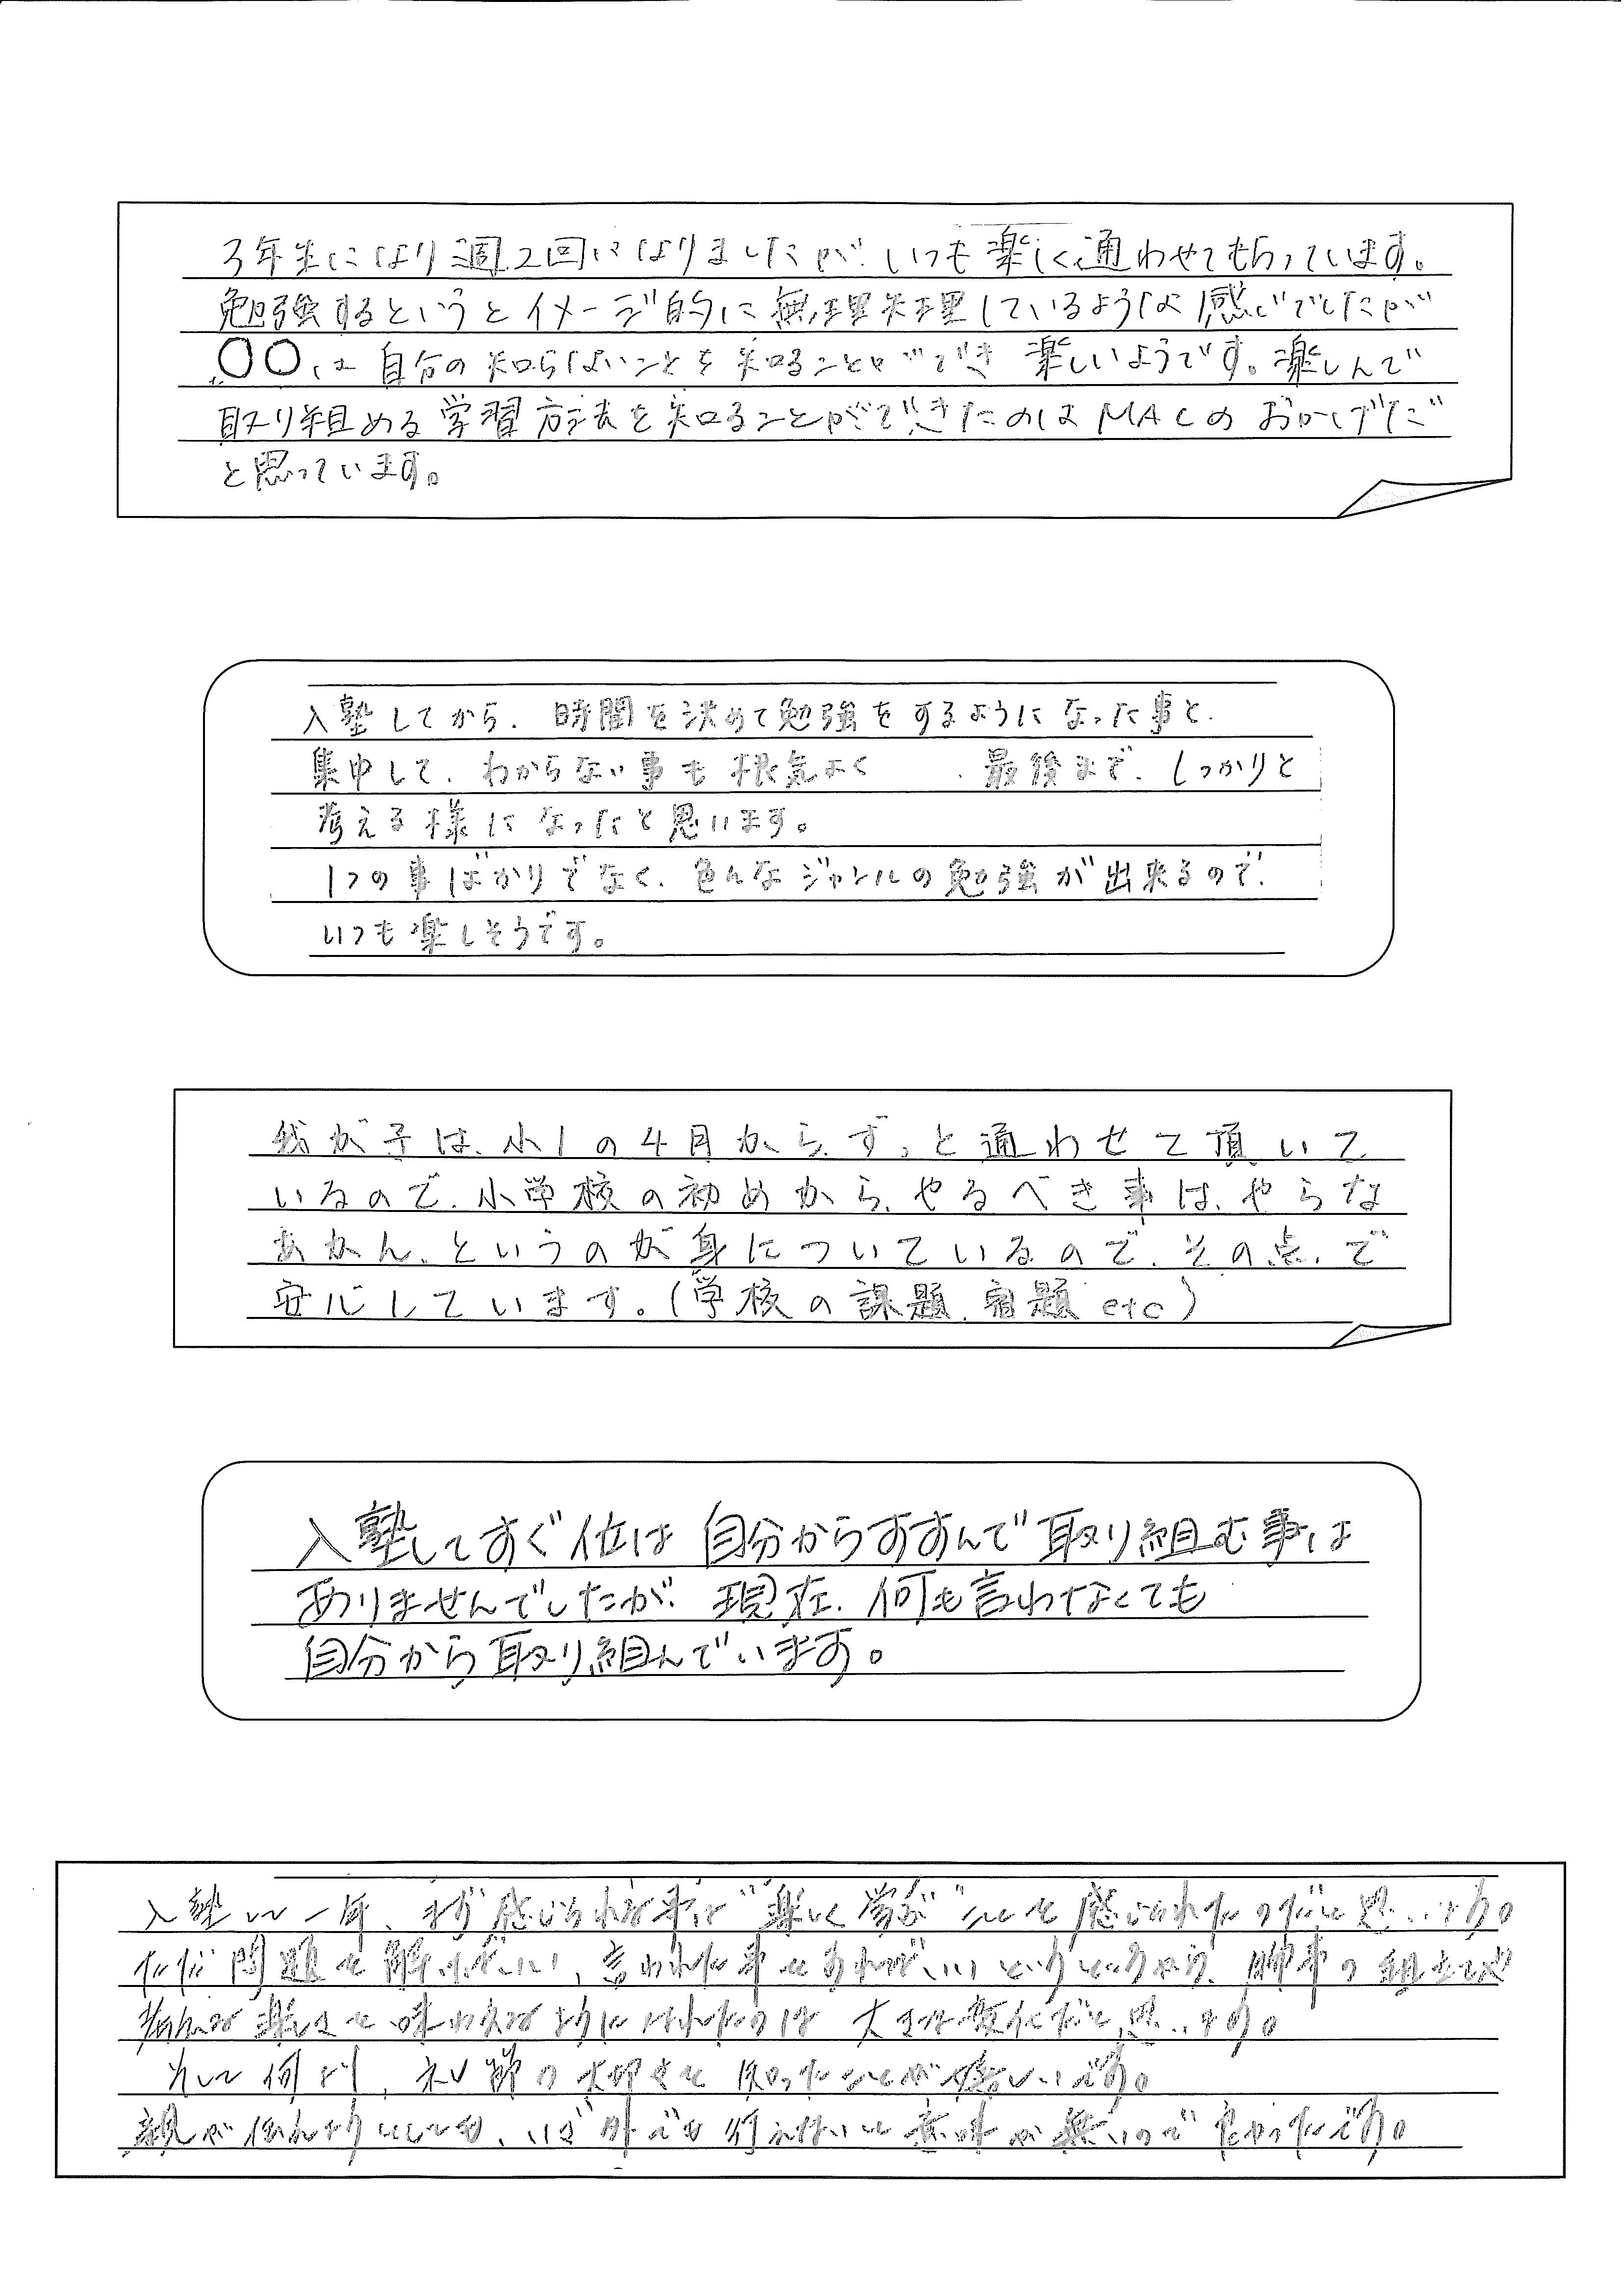 3年生になり週2回になりましたが、いつも楽しく通わせてもらっています。
勉強するというとイメージ的に無理矢理しているような感じでしたが
〇〇は自分の知らないことを知ることができ楽しいようです。楽しんで
取り組める学習方法を知ることができたのはMACのおかげだ
と思っています。
入塾してから、時間を決めて勉強をするようになった事と、
集中して、わからない事も根気よく、最後まで、しっかりと
考える様になったと思います。
1つの事ばかりでなく、色んなジャンルの勉強が出来るので、
いつも楽しそうです。
我が子は、小1の4月から、ずっと通わせて頂いて
いるので、小学校の初めから、やるべき事は、やらな
あかん、というのが身についているので、その点、で
安心しています。(学校の課題、宿題etc)
入塾してすぐ位は自分からすすんで取り組む事は
ありませんでしたが、現在、何も言わなくても
自分から取り組んでいます。
入塾して一年、まず感じられる事は"楽しく学ぶ"ことを感じられたのだと思います。
ただ問題を解けばいい、言われた事をやればいいというところから、物事の組立てや
楽しさを味わえるようになれたのは 大きな変化だと思います。
そして何より、礼節の大切さを知ったことが嬉しいです。
親が伝えようとしても、いざ外でも行えないと意味が無いので良かったです。